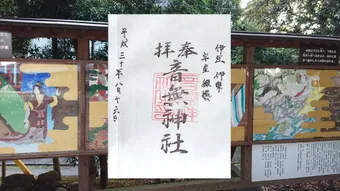 伊豆 伊東
安産 縁結
奉拝
音無神社
平成三十年八月十六日